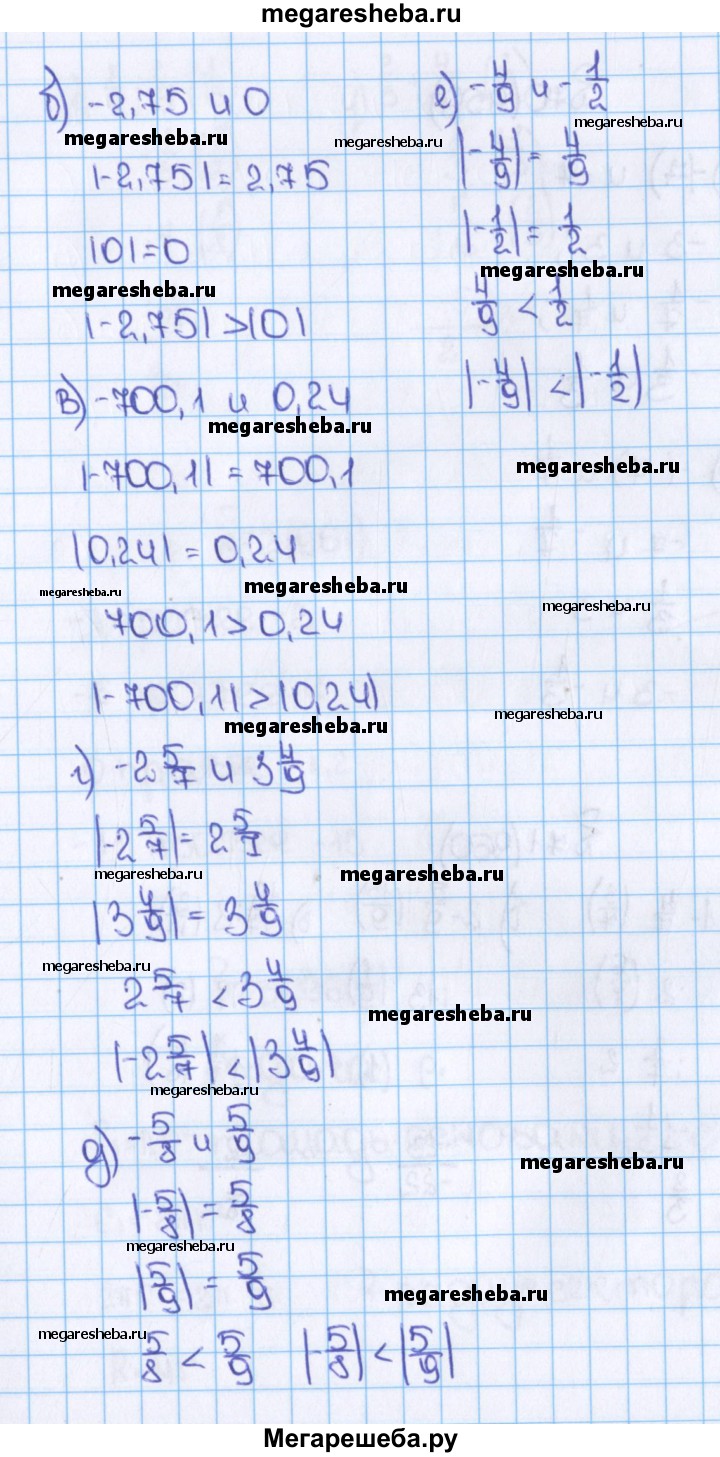 megaresheba.ru
б) -2,75 и 0
megaresheba.ru
|-2,75| = 2,75
|0| = 0
megaresheba.ru
|-2,75| > |0|
в) -700,1 и 0,24
megaresheba.ru
|-700,1| = 700,1
|0,24| = 0,24
megaresheba.ru
megaresheba.ru
700,1 > 0,24
|-700,1| > |0,24|
megaresheba.ru
г) -2 5/7 и 3 4/9
|-2 5/7| = 2 5/7
megaresheba.ru
megaresheba.ru
|3 4/9| = 3 4/9
megaresheba.ru
2 5/7 < 3 4/9
megaresheba.ru
|-2 5/7| < |3 4/9|
megaresheba.ru
д) -5/8 и 5/9
megaresheba.ru
|-5/8| = 5/8
megaresheba.ru
|5/9| = 5/9
megaresheba.ru
megaresheba.ru
5/8 < 5/9 |-5/8| < |5/9|
е) -4/9 и -1/2
megaresheba.ru
megaresheba.ru
|-4/9| = 4/9
|-1/2| = 1/2
megaresheba.ru
4/9 < 1/2
|-4/9| < |-1/2|
megaresheba.ru
megaresheba.ru
megaresheba.ru
Мегарешеба.ру